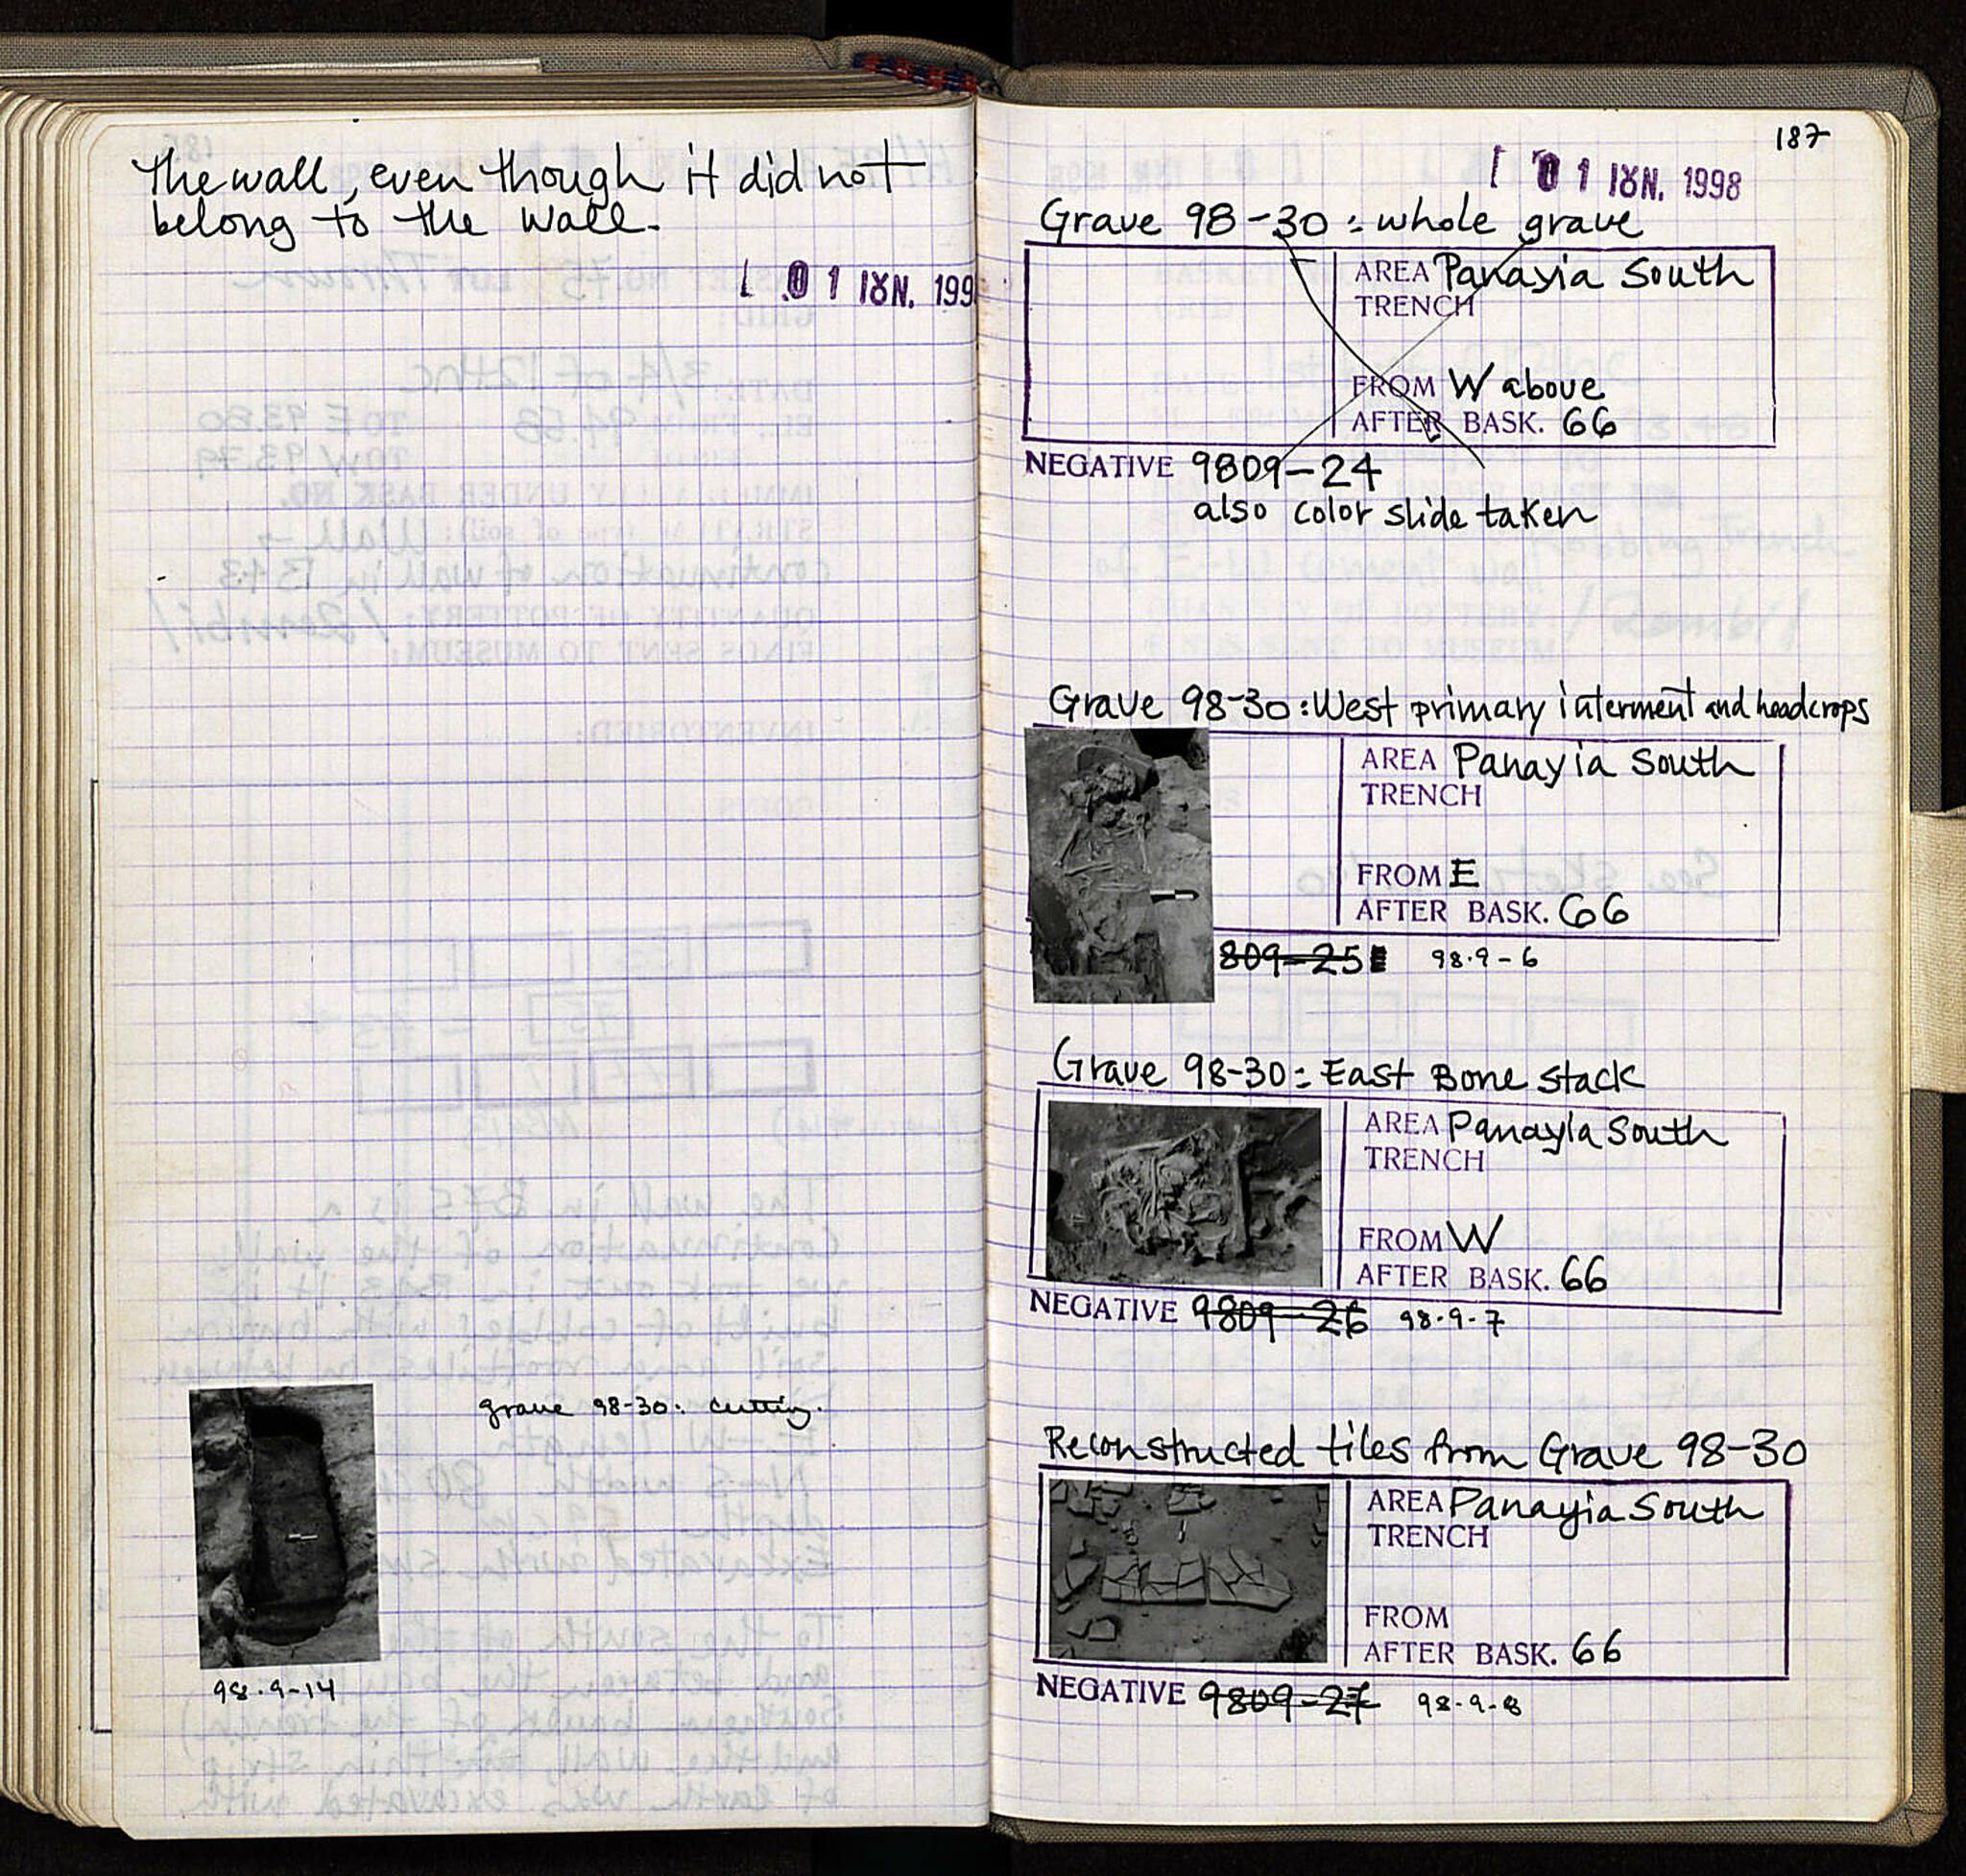 The wall, even though it did not
belong to the wall.
01 ΙȣΝ. 199
grave 98-30: cutting.
98.9-14
187
01 ΙȣΝ. 1998
Grave 98-30: whole grave
AREA Panayia South
TRENCH
FROM W above
AFTER BASK. 66
NEGATIVE 9809-24
also color slide taken
Grave 98-30: West primary interment and headcrops
AREA Panayia South
TRENCH
FROM E
AFTER BASK. 66
809-25 98.9-6
Grave 98-30: East Bone stack
AREA Panayia South
TRENCH
FROM W
AFTER BASK. 66
NEGATIVE 9809-26 98.9-7
Reconstructed tiles from Grave 98-30
AREA Panayia South
TRENCH
FROM
AFTER BASK. 66
NEGATIVE 9809-27 98-9-8